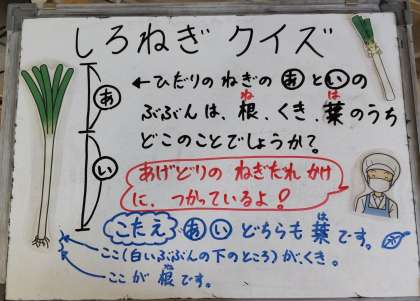 しろねぎ クイズ
あ
い
←ひだりの ねぎの あ と い の
ぶぶんは、根、くき、葉のうち
ね は
どこのことでしょうか?
あげどりの ねぎたれ かけ
に、つかっているよ!
こたえ あ い どちらも 葉です。
は
ここ(白いぶぶんの下のところ)がくき。
ここ が 根です。
ね